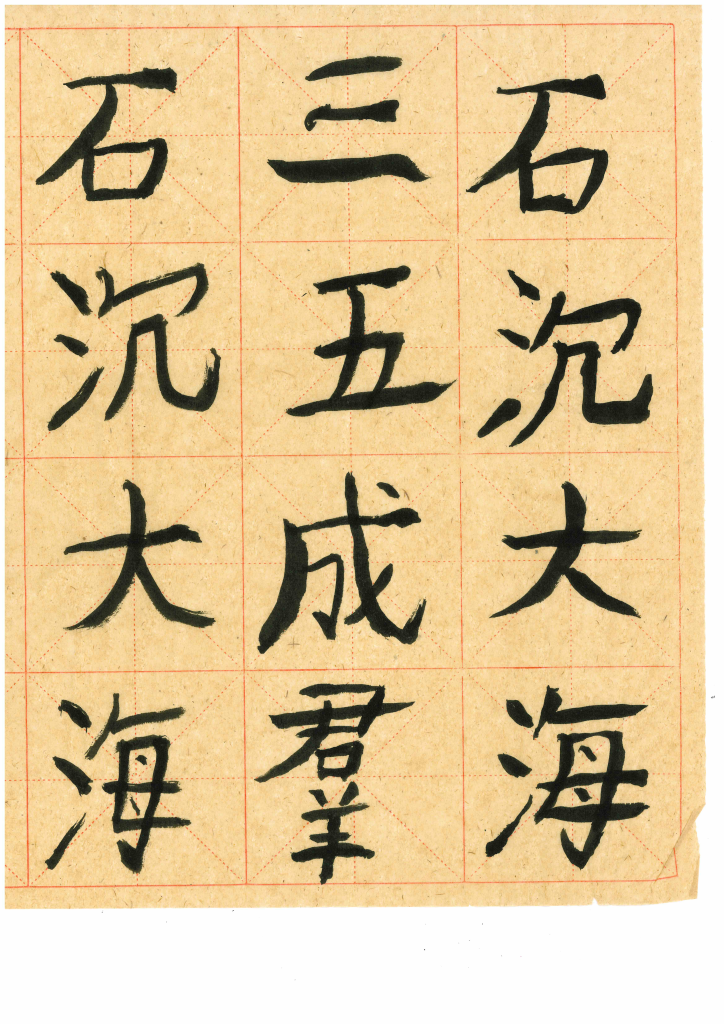 石沉大海
三五成羣
石沉大海